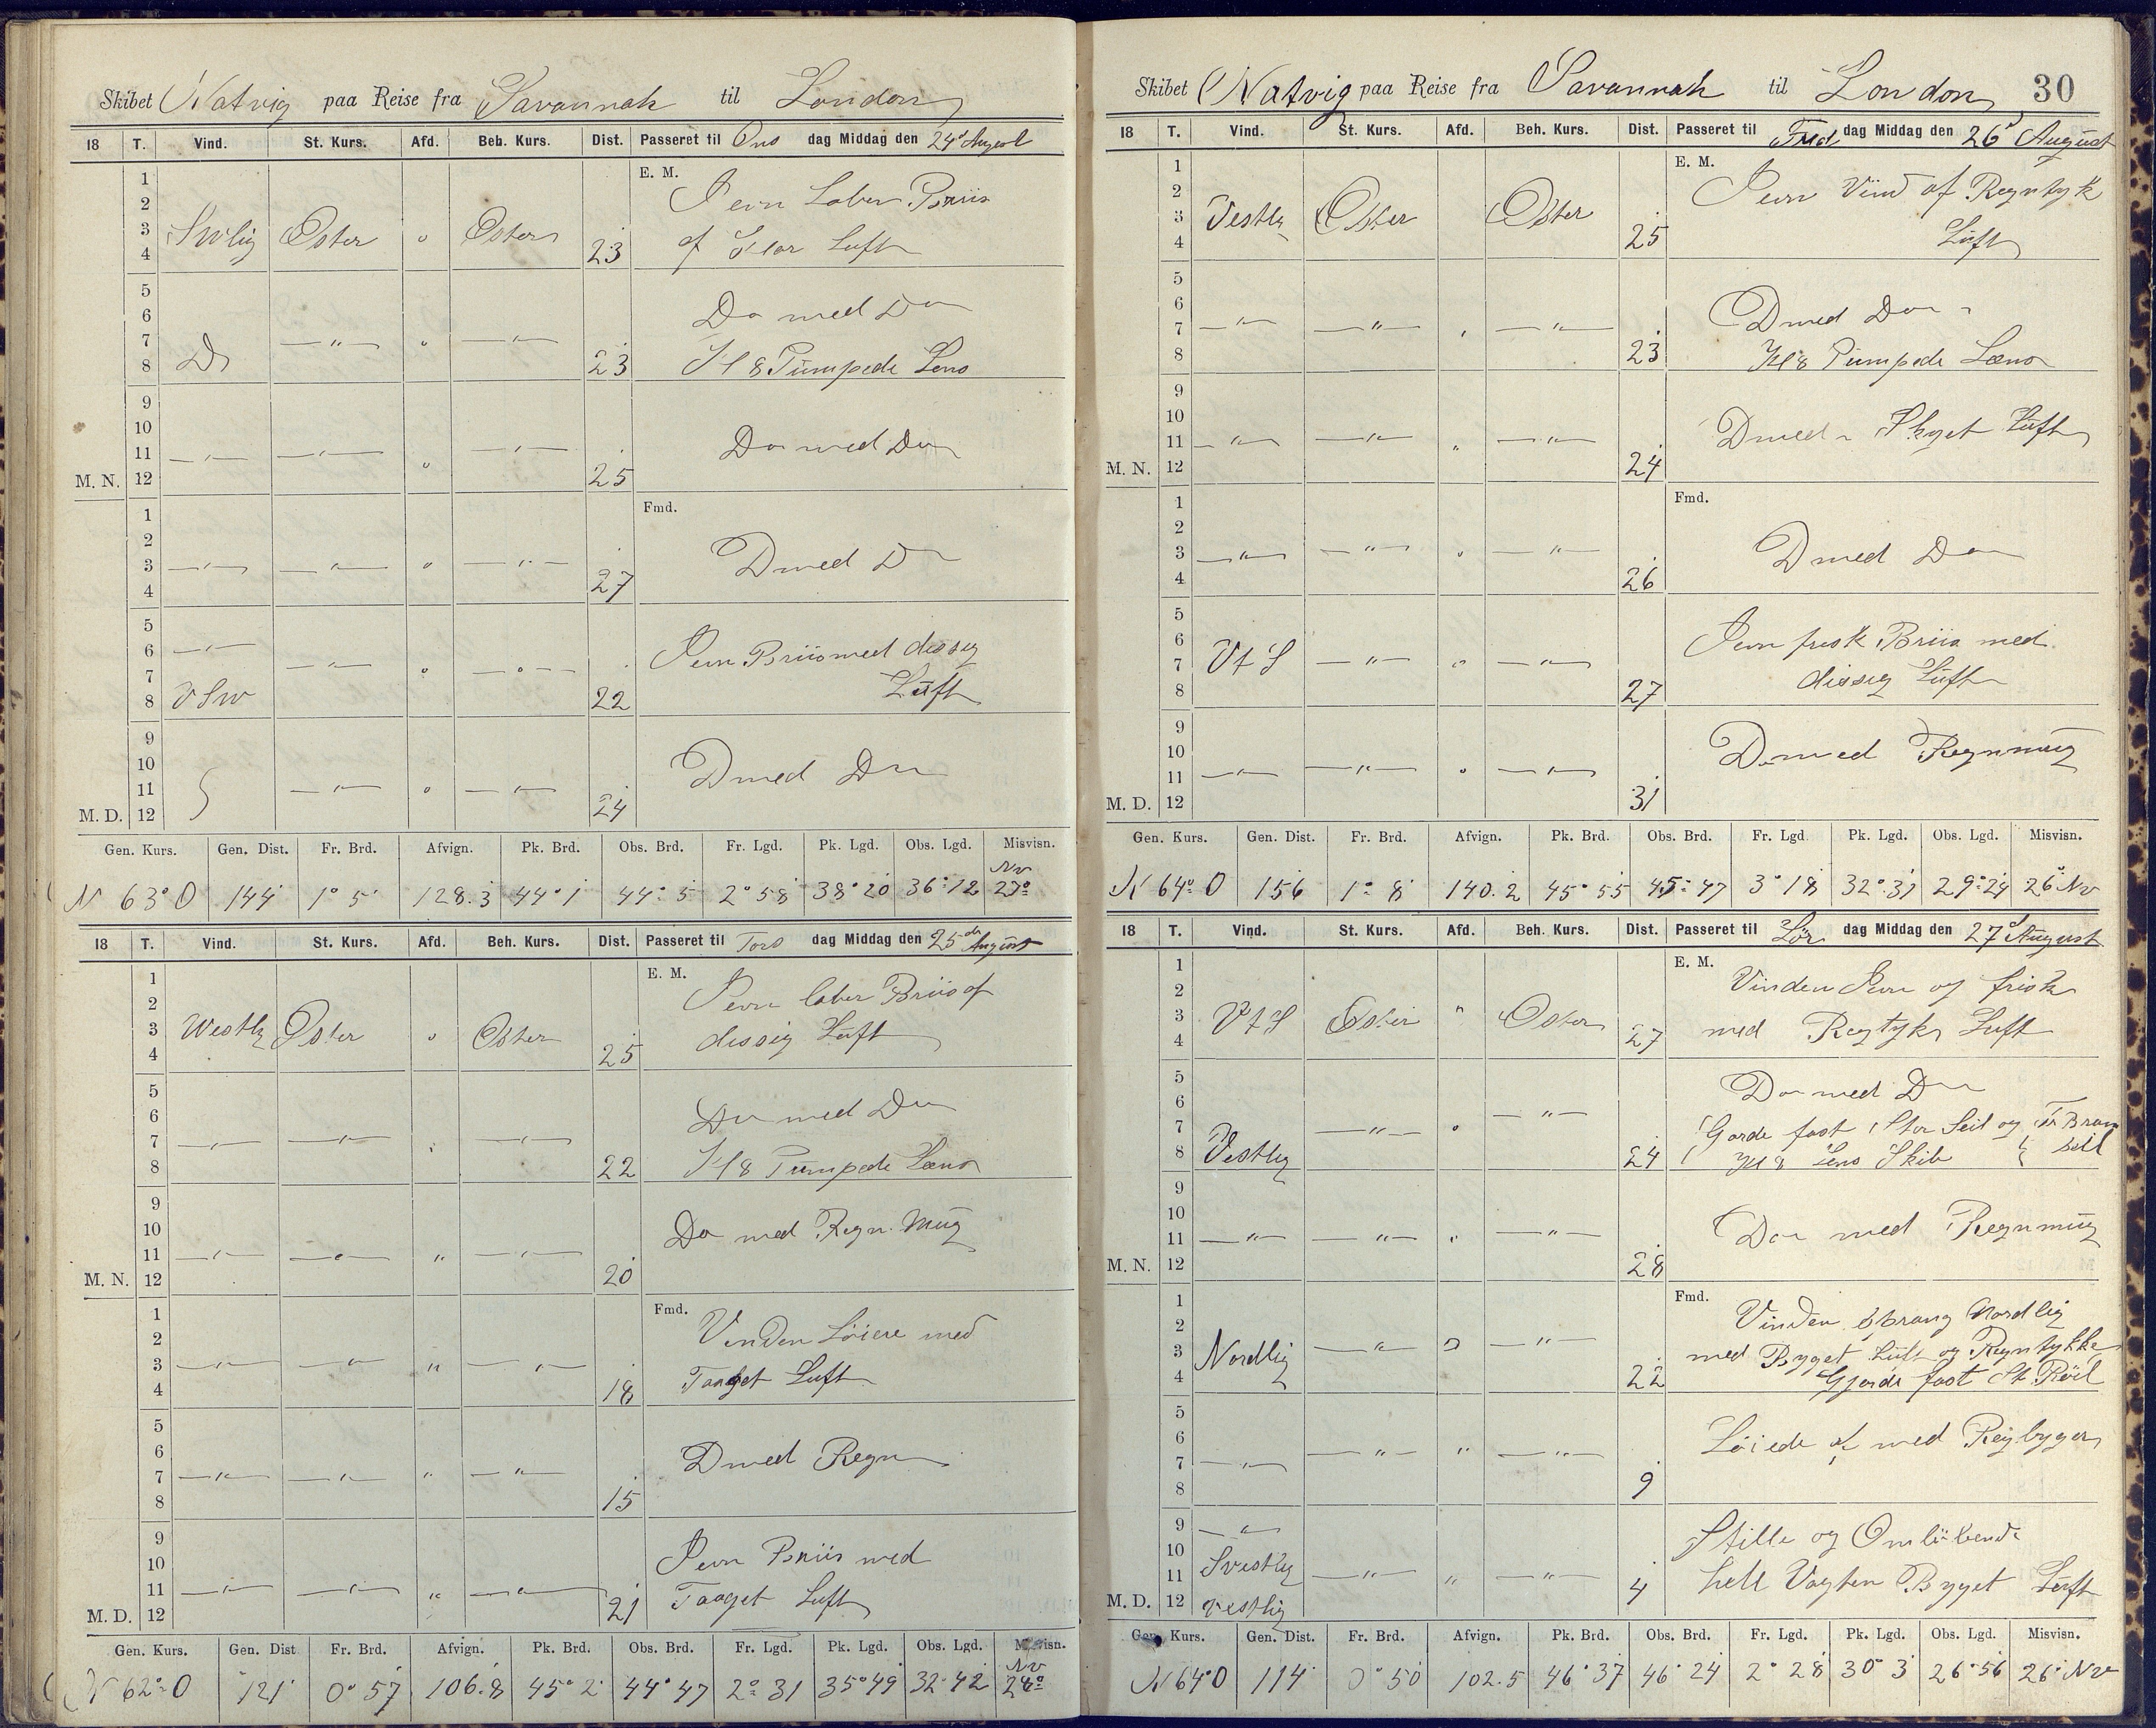 Skibet Natvig paa Reise fra Savannah til London
18 T. Vind. St. Kurs. Afd. Beh. Kurs. Dist. Passeret til Ons dag Middag den 24d August
E. M.
1
2 Jevn Laber Briis
3 SWlig Oster " Oster 23 og Klar Luft
4
5
6 Do med Do
7 Do —"— " —"— 23 Kl 8 Pumpede Lens
8
9
10
11 —"— —"— " —"— 25 Do med Do
M. N. 12
Fmd.
1
2
3 —"— —"— " —"— 27 D med D
4
5
6 —"— Jevn Briis med dissig
7 —"— " —"— 22 Luft
8 VSW
9
10 D med Do
11 —"— " —"— 24
M. D. 12
Gen. Kurs. Gen. Dist. Fr. Brd. Afvign. Pk. Brd. Obs. Brd. Fr. Lgd. Pk. Lgd. Obs. Lgd. Misvisn.
N 63° O 144 1° 5' 128.3 44° 1 44° 5 2° 58 38° 20 36° 12 NV 27°
18 T. Vind. St. Kurs. Afd. Beh. Kurs. Dist. Passeret til Tors dag Middag den 25de August
E. M.
1
2 Jevn laber Briis og
3 Westlg Oster " Oster 25 dissig Luft
4
5
6 Do med Do
7 —"— —"— " —"— 22 Kl 8 Pumpede Læns
8
9
10 Do med Regn. Mug
11 —"— —"— " —"— 20
M. N. 12
Fmd.
1 Vinden Løiere med
2
3 —"— —"— " —"— 18 Taaget Luft
4
5
6
7 —"— —"— " —"— 15 D med Regn
8
9
10 Jevn Briis med
11 —"— —"— " —"— 21 Taaget Luft
M. D. 12
Gen. Kurs. Gen. Dist Fr. Brd. Afvign. Pk. Brd. Obs. Brd. Fr. Lgd. Pk. Lgd. Obs. Lgd. Misvisn.
N 62° O 121 0° 57 106.8 45° 2 44° 47 2° 31 35° 49 32° 42 NV
Skibet Natvig paa Reise fra Savannah til London 30
18 T. Vind. St. Kurs. Afd. Beh. Kurs. Dist. Passeret til Fre dag Middag den 26d August
E. M.
1 Jevn Vind og Regntyk
2
3 Vestlg Oster Oster 25 Luft
4
5
6 D med Do
7 —"— —"— " —"— 23 Kl 8 Pumpede Læns
8
9
10
11 —"— —"— " —"— 24 D med Skyet Luft
M. N. 12
Fmd.
1
2
3 —"— —"— " —"— 26 D med Do
4
5
6 Jevn frisk Briis med
7 VtS —"— " —"— 27 dissig Luft
8
9
10 Do med Regnmug
11 —"— —"— " —"— 31
M. D. 12
Gen. Kurs. Gen. Dist. Fr. Brd. Afvign. Pk. Brd. Obs. Brd. Fr. Lgd. Pk. Lgd. Obs. Lgd. Misvisn.
N 64° O 156 1° 8 140.2 45° 55 45° 47 3° 18 32° 31 29° 24 26° NV
18 T. Vind. St. Kurs. Afd. Beh. Kurs. Dist. Passeret til Lör dag Middag den 27d August
E. M.
1 Vinden Jevn og frisk
2
3 VtS Oster " Oster 27 med Regtyk Luft
4
5
6 —"— Do med Do
7 —"— " Gorde fast Stor Seil og Bram
8 Vestlig 24 Kl 8 Lens Skib seil
9
10
11 —"— —"— " —"— 28 Do med Regnmug
M. N. 12
Fmd.
1 Vinden sprang Nordlig
2
3 Nordlig —"— " —"— 22 med Byget Luft og Regntykke
4 Gjorde fast St. Röil
5
6 Löiede af med Regbyger
7 —"— —"— " —"— 9
8
9 —"— Stille og Omlöbende
10 Svestlig
11 —"— " —"— 4 hell Vagten Byget Luft
M. D. 12 Vestlig
Gen. Kurs. Gen. Dist. Fr. Brd. Afvign. Pk. Brd. Obs. Brd. Fr. Lgd. Pk. Lgd. Obs. Lgd. Misvisn.
N 64° O 114 0° 50 102.5 46° 37 46° 24 2° 28 30° 3 26° 56 26° NV